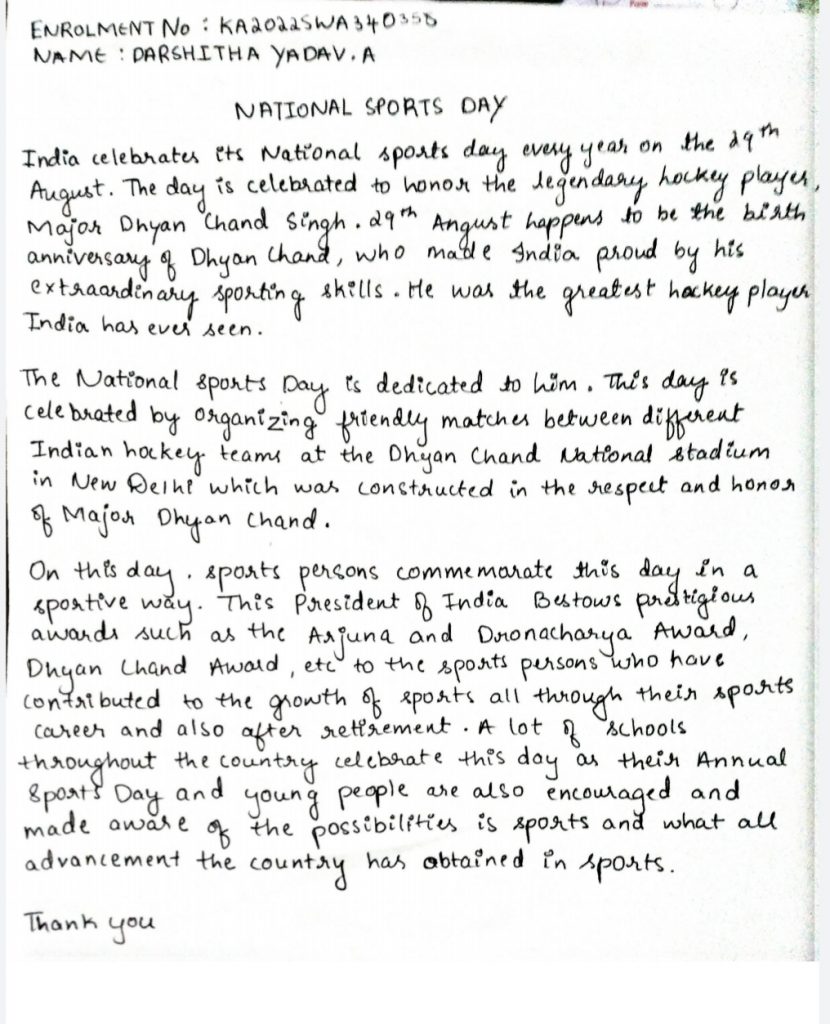 ENROLMENT No : KA2022SWA340358
NAME : DARSHITHA YADAV.A
NATIONAL SPORTS DAY
India celebrates its National sports day every year on the 29th
August. The day is celebrated to honor the legendary hockey player,
Major Dhyan Chand Singh. 29th Angust happens to be the birth
anniversary of Dhyan Chand, who made India proud by his
extraordinary sporting skills. He was the greatest hockey player
India has ever seen.
The National sports Day is dedicated to him. This day is
celebrated by organizing friendly matches between different
Indian hockey teams at the Dhyan Chand National stadium
in New Delhi which was constructed in the respect and honor
of Major Dhyan Chand.
On this day, sports persons commemorate this day in a
sportive way. This President of India Bestows prestigious
awards such as the Arjuna and Dronacharya Award,
Dhyan Chand Award, etc to the sports persons who have
contributed to the growth of sports all through their sports
career and also after retirement. A lot of schools
throughout the country celebrate this day as their Annual
Sports Day and young people are also encouraged and
made aware of the possibilities is sports and what all
advancement the country has obtained in sports.
Thank you